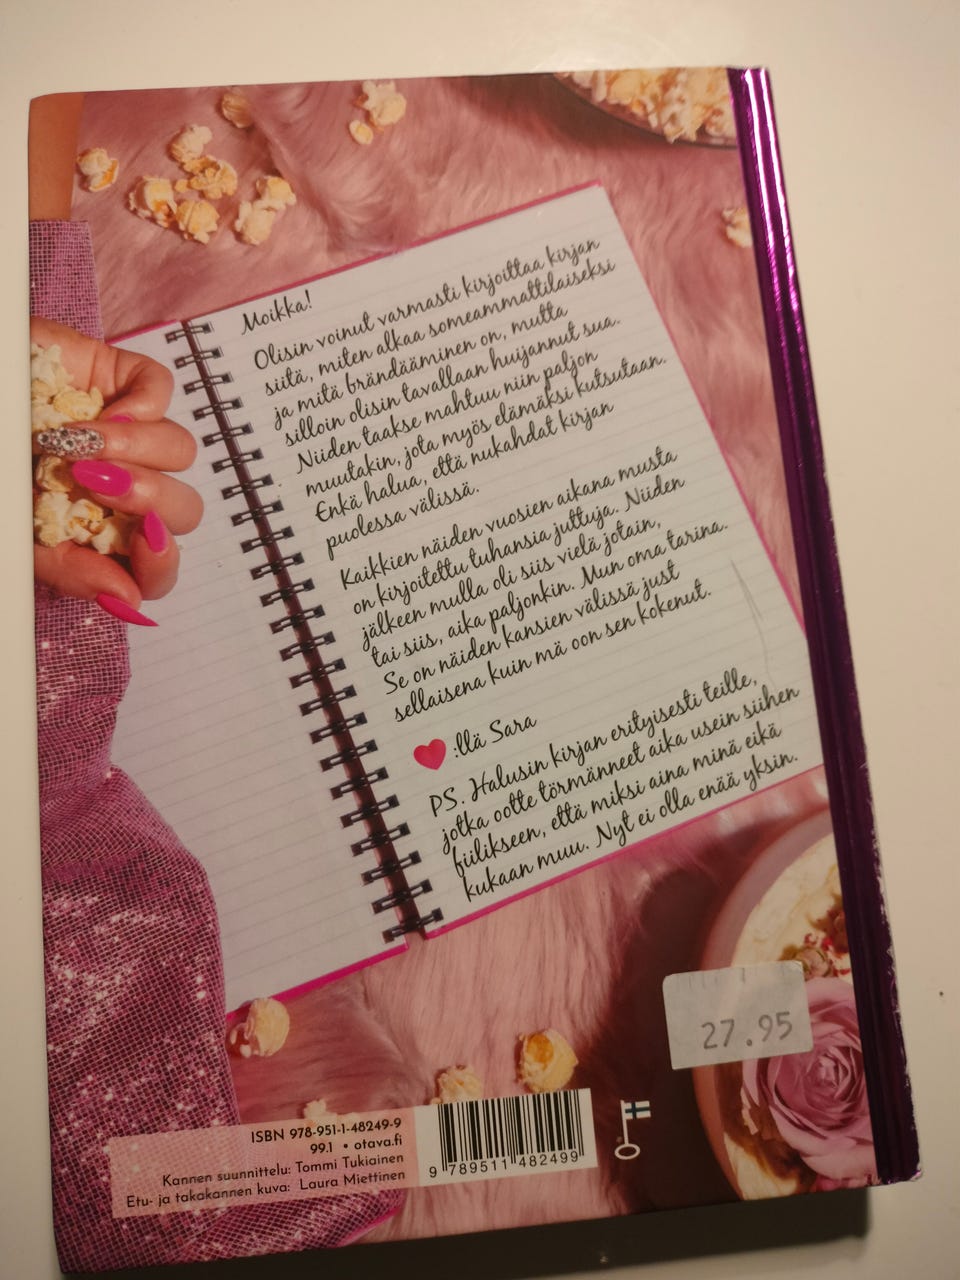 Moikka!
Olisin voinut varmasti kirjoittaa kirjan
siitä, miten alkaa someammattilaiseksi
ja mitä brändääminen on, mutta
silloin olisin tavallaan huijannut sua.
Niiden taakse mahtuu niin paljon
muutakin, jota myös elämäksi kutsutaan.
Enkä halua, että nukahdat kirjan
puolessa välissä.
Kaikkien näiden vuosien aikana musta
on kirjoitettu tuhansia juttuja. Niiden
jälkeen mulla oli siis vielä jotain,
tai siis, aika paljonkin. Mun oma tarina.
Se on näiden kansien välissä just
sellaisena kuin mä oon sen kokenut.
:llä Sara
PS. Halusin kirjan erityisesti teille,
jotka ootte törmänneet aika usein siihen
fiilikseen, että miksi aina minä eikä
kukaan muu. Nyt ei olla enää yksin.
27.95
ISBN 978-951-1-48249-9
99.1 • otava.fi
Kannen suunnittelu: Tommi Tukiainen
Etu- ja takakannen kuva: Laura Miettinen
9 789511 482499